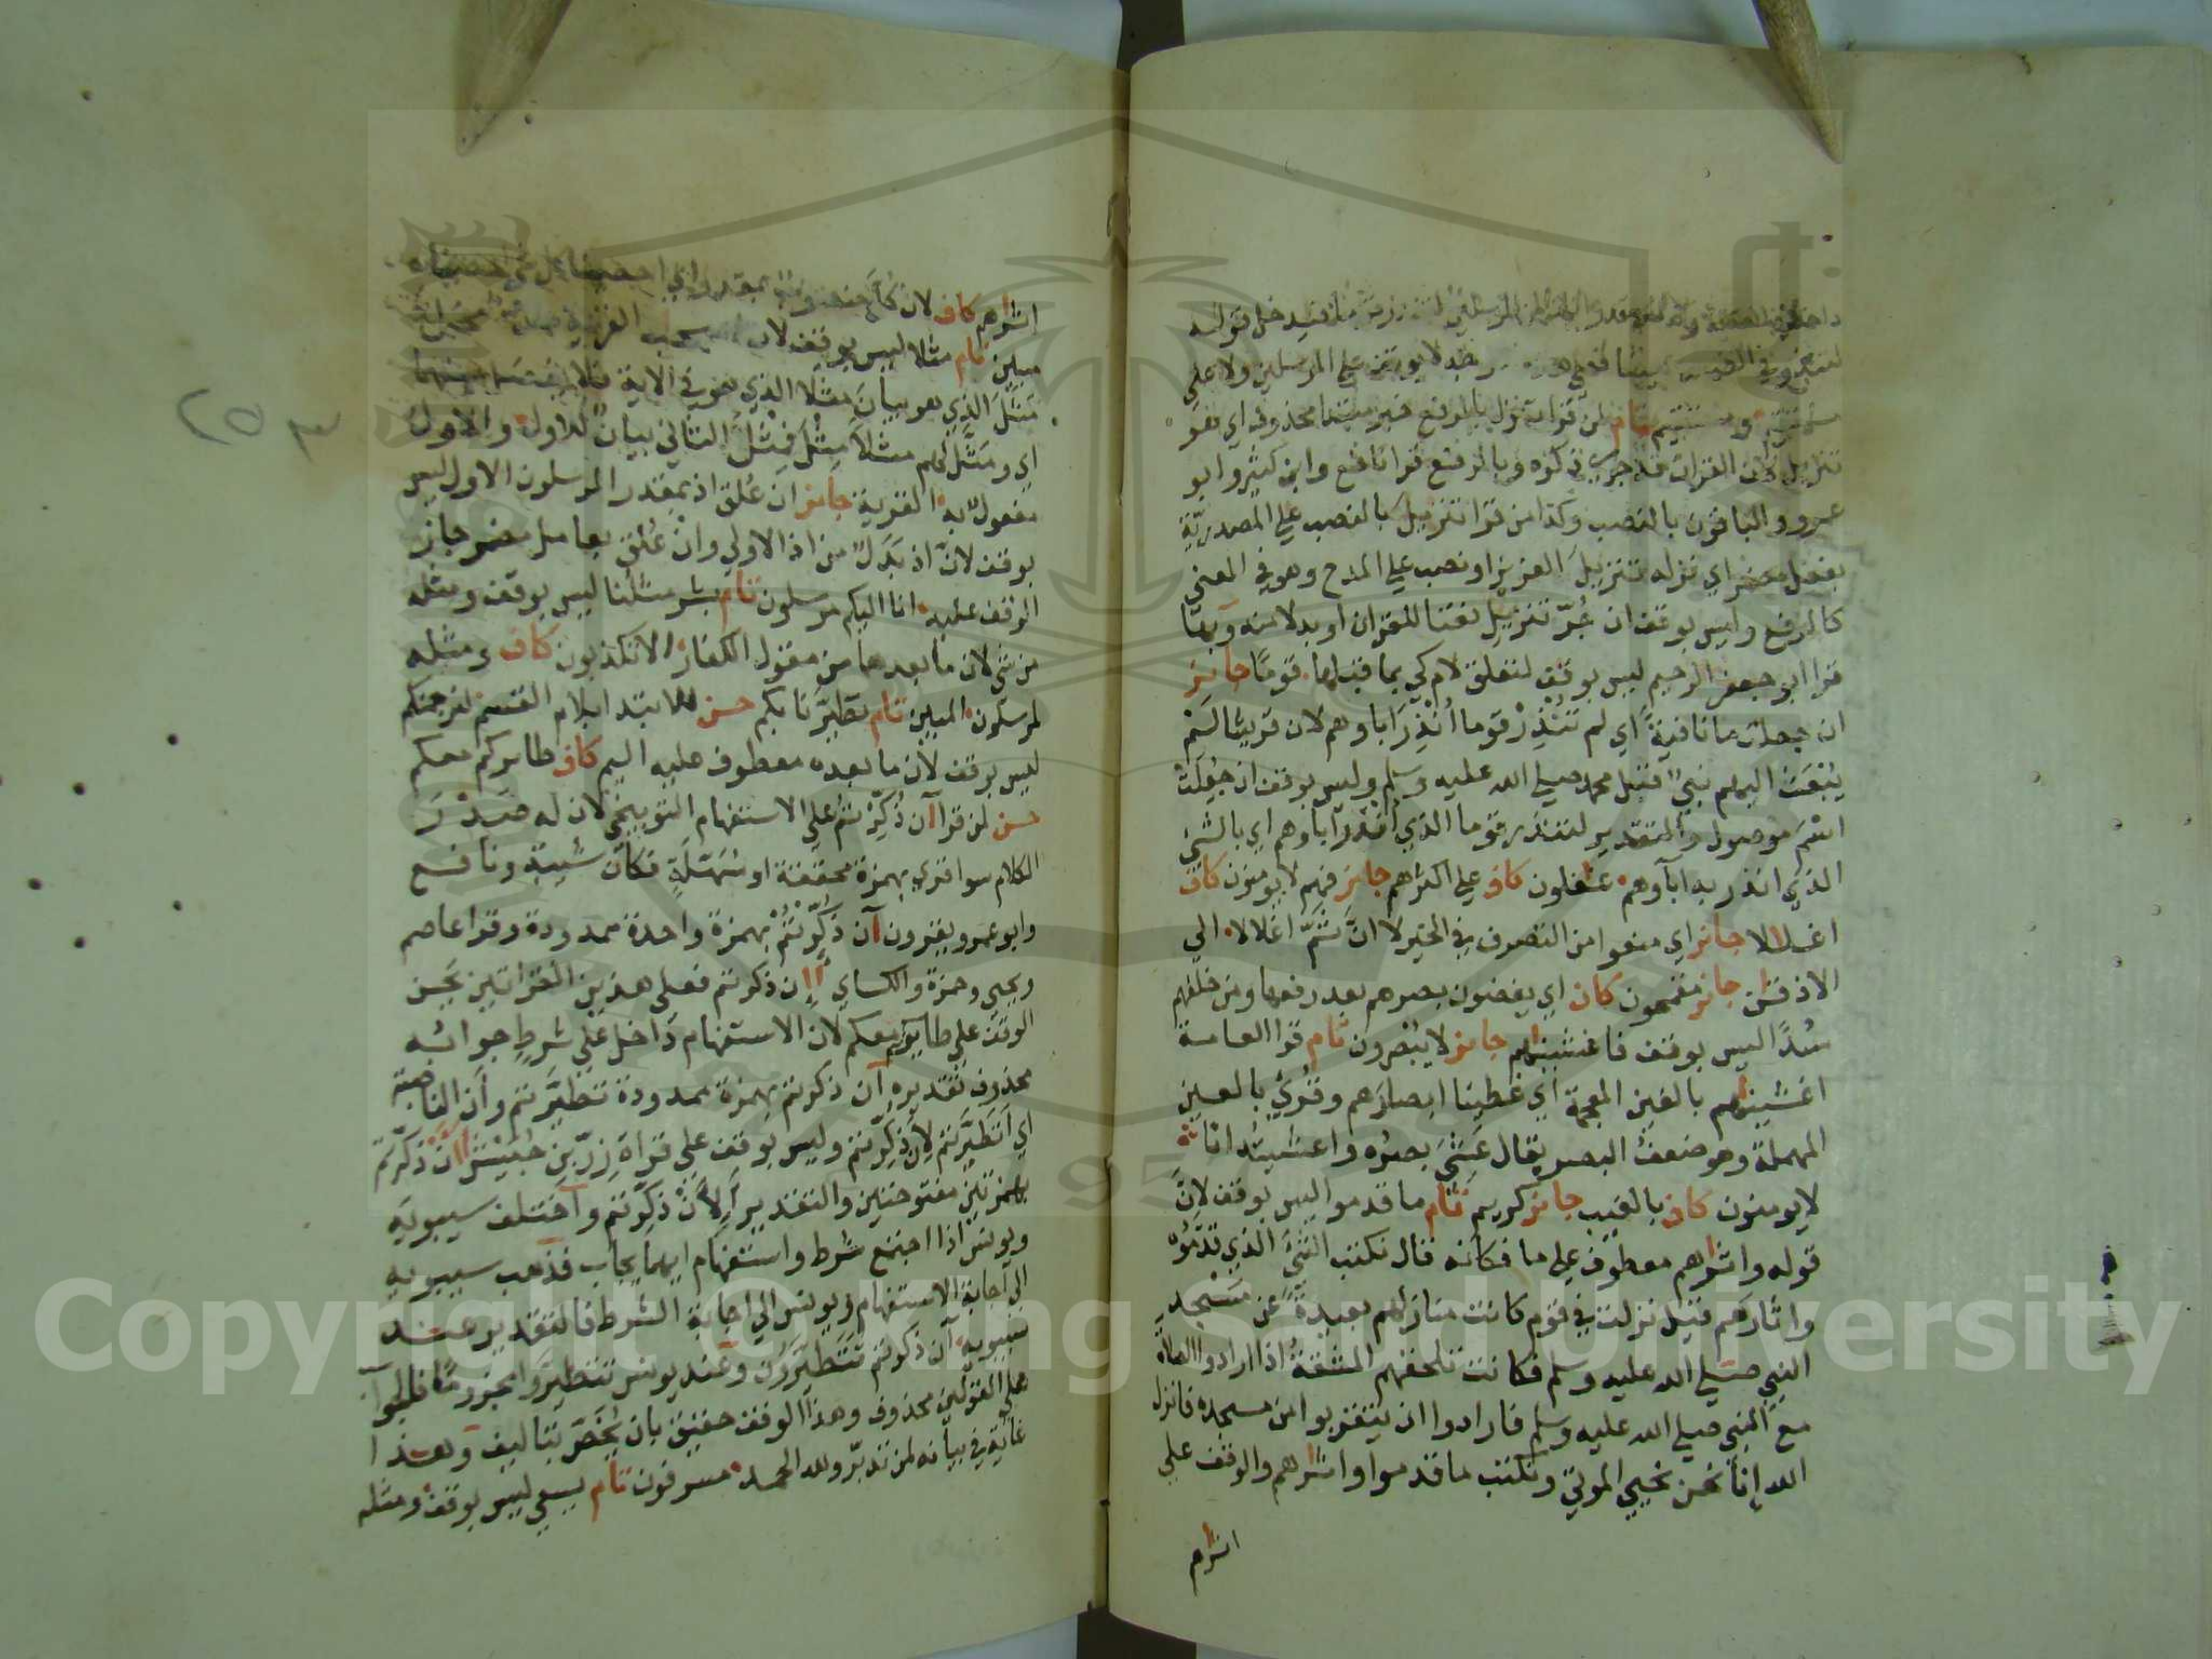 لتنذر
مستقيم تام لمن قرا تنزيل بالرفع خبر مبتدا محذوف اي هو
تنزيل لان القران قد جري ذكره وبالرفع قرا نافع وابن كثير وابو
عمرو والباقون بالنصب وكذا من قرا تنزيل بالنصب علي المصدرية
بفعل مضمر اي نزله تنزيل العزيز او نصب علي المدح وهو في المعني
كالرفع وليس بوقف ان جُرّ تنزيل نعتا للقران او بدلا منه وبها
قرا ابو جعفر الرحيم ليس بوقف لتعلق لام كي بما قبلها قومًا جايز
ان جعلت ما نافية اي لم تُنْذِرْ قوما أُنْذِرَ اباوهم لان قريشا لَمْ
يُبْعَث اليهم نبيّ قبل محمد صلي الله عليه وسلم وليس بوقف ان جُعِلَتْ
اسْمَ موصول والتقدير لتنذر قوما الذي أنذر اباوهم اي بالشي
الذي انذر به اباوهم غفلون كاف علي اكثرهم جايز فهم لا يومنون كاف
اغللا جايز اي منعوا من التصرف في الخير لا انّ ثَمَّ اغلالا الي
الاذقن جايز مقمحون كاف اي يغضون بصرهم بعد رفعها ومن خلفهم
سُدًّا ليس بوقف فاغشينهم جايز لا يبصرون تام قرا العامة
اغشينهم بالغين المعجمة اي غطينا ابصارهم وقُرِيَ بالعين
المهملة وهو ضعف البصر يقال عَشِيَ بصره واعشيته انا
لا يومنون كاف بالغيب جايز كريم تام ما قدموا ليس بوقف لانّ
قوله واثرهم معطوف علي ما فكانه قال نكتب الشيَ الذي قدّموه
واثارهم قيل نزلت في قوم كانت منازلهم بعيدةً عن مسجد
النبي صلي الله عليه وسلم فكانت تلحقهم المشقة اذا ارادوا الصلاة
مع النبي صلي الله عليه وسلم فارادوا ان يتقربوا من مسجده فانزل
الله انا نحن نحيي الموتي ونكتب ما قدموا واثرهم والوقف علي
اثرهم
٢٥٣
اثرهم كاف لان كلَّ منصوب بمقدر اي احصينا كل شي احصيناه
مبين تام مثلا ليس بوقف لان
مثل الذي هو بيان مثلا الذي هو في الاية
اي ومثّل لهم مثلاً مِثْلَ فمثل الثاني بيان للاول والاول
مفعول به القرية جايز ان عُلق اذ بمقدر المرسلون الاول ليس
بوقف لانّ اذ بدل من اذ الاولي وانْ عُلق بعامل مضمر جاز
الوقف عليه انا اليكم مرسلون تام بشر مثلنا ليس بوقف ومثله
من شي لان ما بعدهما من مقول الكفار الا تكذبون كاف ومثله
لمرسلون المبين تام تطيّرنا بكم حسن للابتدا بلام القسم لنرجمنكم
ليس بوقف لان ما بعده معطوف عليه اليم كاف طايركم معكم
حسن لمن قرا آن ذُكِّرتم علي الاستفهام التوبيخي لان له صدر
الكلام سوا قري بهمزة محققة او مسهلة فكان شيبة ونافع
وابو عمرو يقرون آن ذُكِّرتم بهمزة واحدة ممدودة وقرا عاصم
ويحيي وحمزة والكساي أإن ذكرتم فعلي هذين القراتين يحسن
الوقف علي طايركم معكم لان الاستفهام داخل علي شرط جوابه
محذوف تقديره آن ذكرتم بهمزة ممدودة تطيّرتم وان الناصبة
اي اتطيّرتم لأن ذُكِّرتم وليس بوقف علي قراة زِرّ بن حُبَيْش أأن ذكّرتم
بهمزتين مفتوحتين والتقدير ألِأنْ ذكّرتم واختلف سيبويه
ويونس اذا اجتمع شرط واستفهام ايهما يجاب فذهب سيبويه
الي اجابة الاستفهام ويونس الي اجابة الشرط فالتقدير عند
سيبويه آن ذكرتم تتطيّرون وعند يونس تتطيّروا بجزم فالجواب
علي القولين محذوف وهذا الوقف حقيق بان يُخَصّ بتاليف وهذا
غاية في بيانه لمن تدبّر ولله الحمد مسرفون تام يسعي ليس بوقف ومثله
Copyright © King Saud University
1957